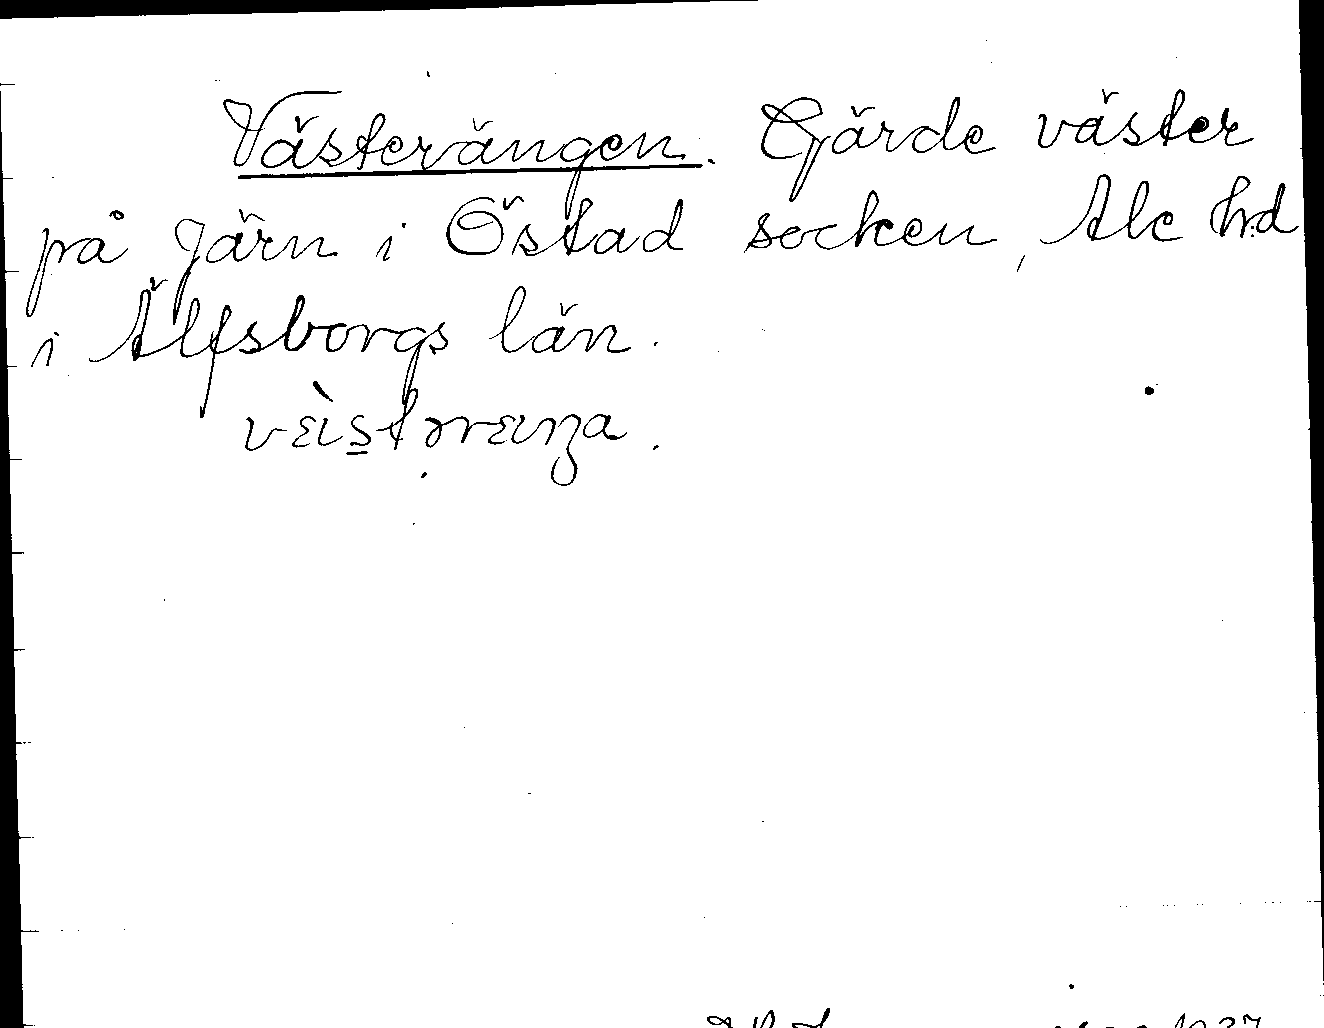 Västerängen. Gärde väster
på Järn i Östad socken, Ale hd
i Älfsborgs län.